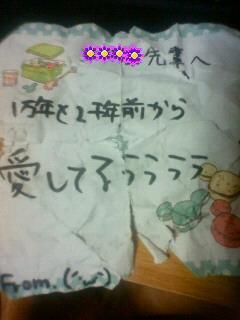 先輩へ
1万年と2千年前から
愛してるぅぅぅぅ
From. (´・ω・`)